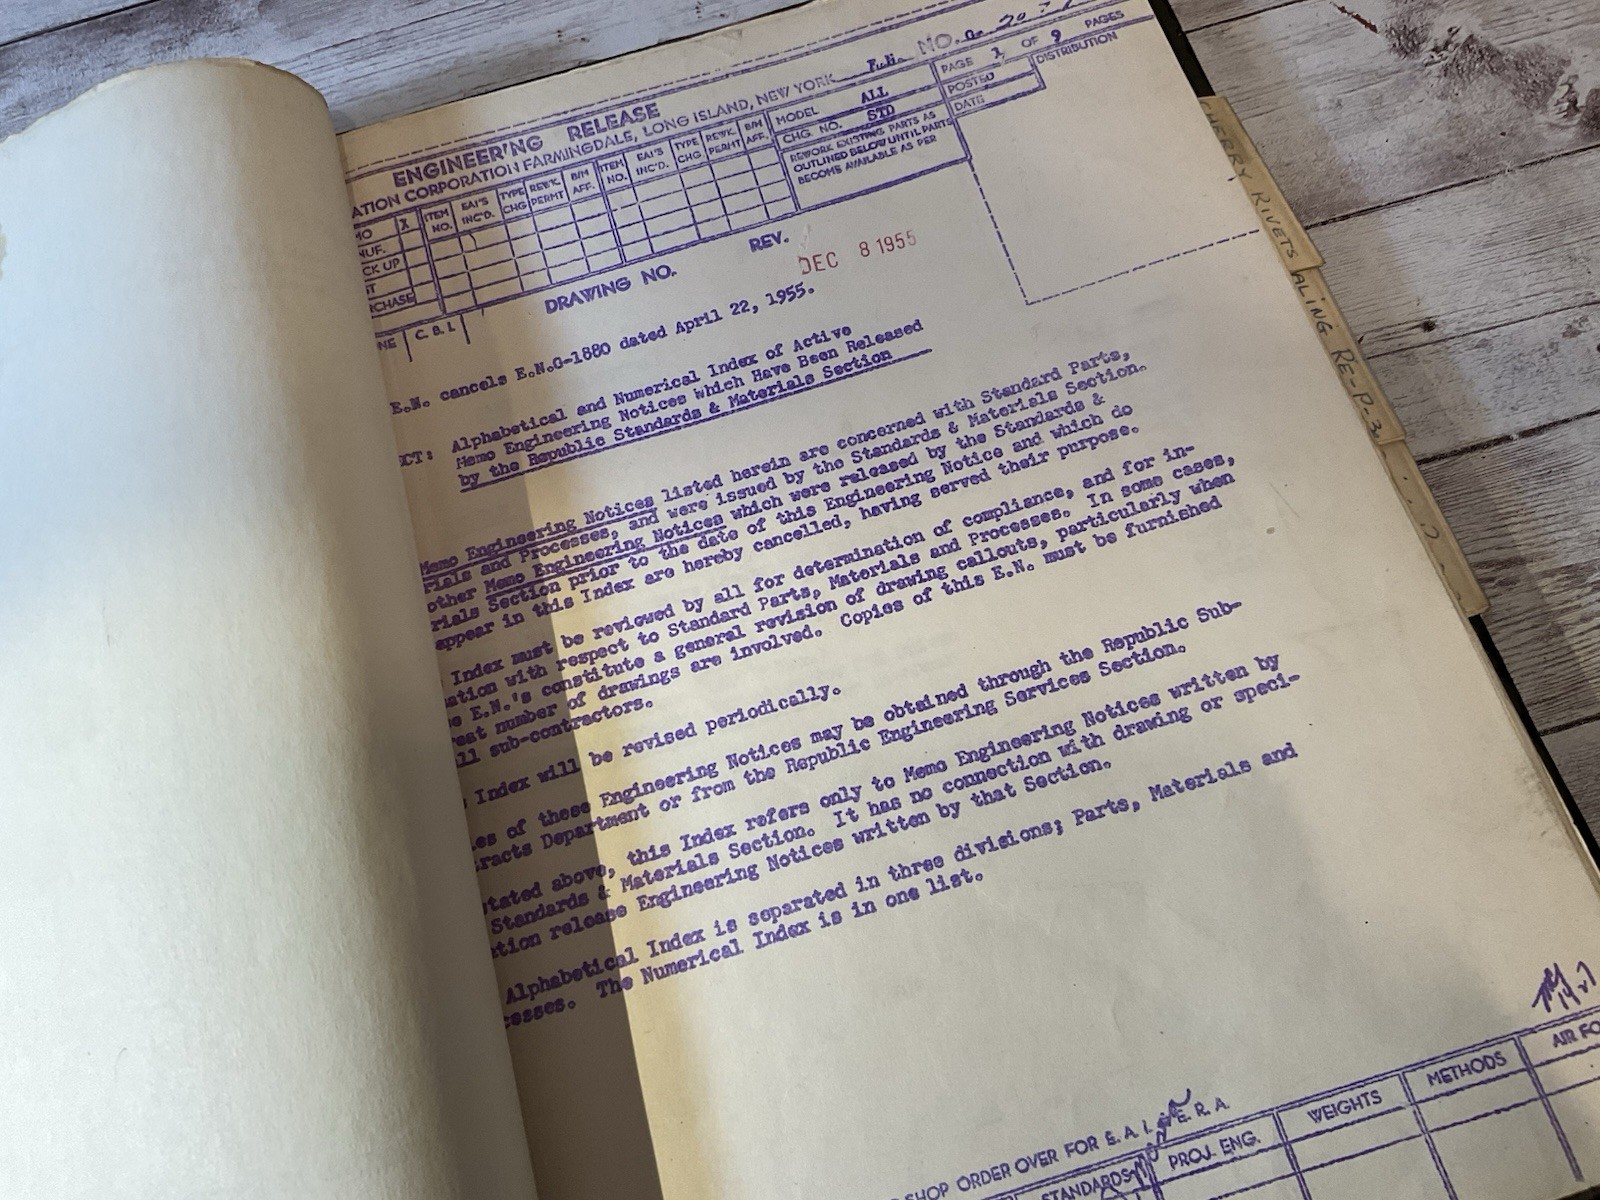 ENGINEERING RELEASE
ATION CORPORATION FARMINGDALE, LONG ISLAND, NEW YORK
NO.
PAGE 1 OF 9 PAGES
MODEL ALL
POSTED
DISTRIBUTION
CHG. NO. STD
DATE
REWORK EXISTING PARTS AS
OUTLINED BELOW UNTIL PARTS
BECOME AVAILABLE AS PER
X
ITEM NO.
EAI'S INC'D.
TYPE CHG
REWK. PERMT
B/M AFF.
ITEM NO.
EAI'S INC'D.
TYPE CHG
REWK. PERMT
B/M AFF.
MO
NUF.
CK UP
ST
RCHASE
NE
C.B.I.
DRAWING NO.
REV.
DEC 8 1955
E.N. cancels E.N.G-1880 dated April 22, 1955.
CT: Alphabetical and Numerical Index of Active
Memo Engineering Notices Which Have Been Released
by the Republic Standards & Materials Section
Memo Engineering Notices listed herein are concerned with Standard Parts,
rials and Processes, and were issued by the Standards & Materials Section.
other Memo Engineering Notices which were released by the Standards &
rials Section prior to the date of this Engineering Notice and which do
appear in this Index are hereby cancelled, having served their purpose.
Index must be reviewed by all for determination of compliance, and for in-
ation with respect to Standard Parts, Materials and Processes. In some cases,
e E.N.'s constitute a general revision of drawing callouts, particularly when
reat number of drawings are involved. Copies of this E.N. must be furnished
ll sub-contractors.
Index will be revised periodically.
es of these Engineering Notices may be obtained through the Republic Sub-
tracts Department or from the Republic Engineering Services Section.
stated above, this Index refers only to Memo Engineering Notices written by
Standards & Materials Section. It has no connection with drawing or speci-
ation release Engineering Notices written by that Section.
Alphabetical Index is separated in three divisions; Parts, Materials and
cesses. The Numerical Index is in one list.
SHOP ORDER OVER FOR E.A.I. E.R.A.
STANDARDS
PROJ. ENG.
WEIGHTS
METHODS
AIR FO
CHERRY RIVETS
ALING RE-P-3